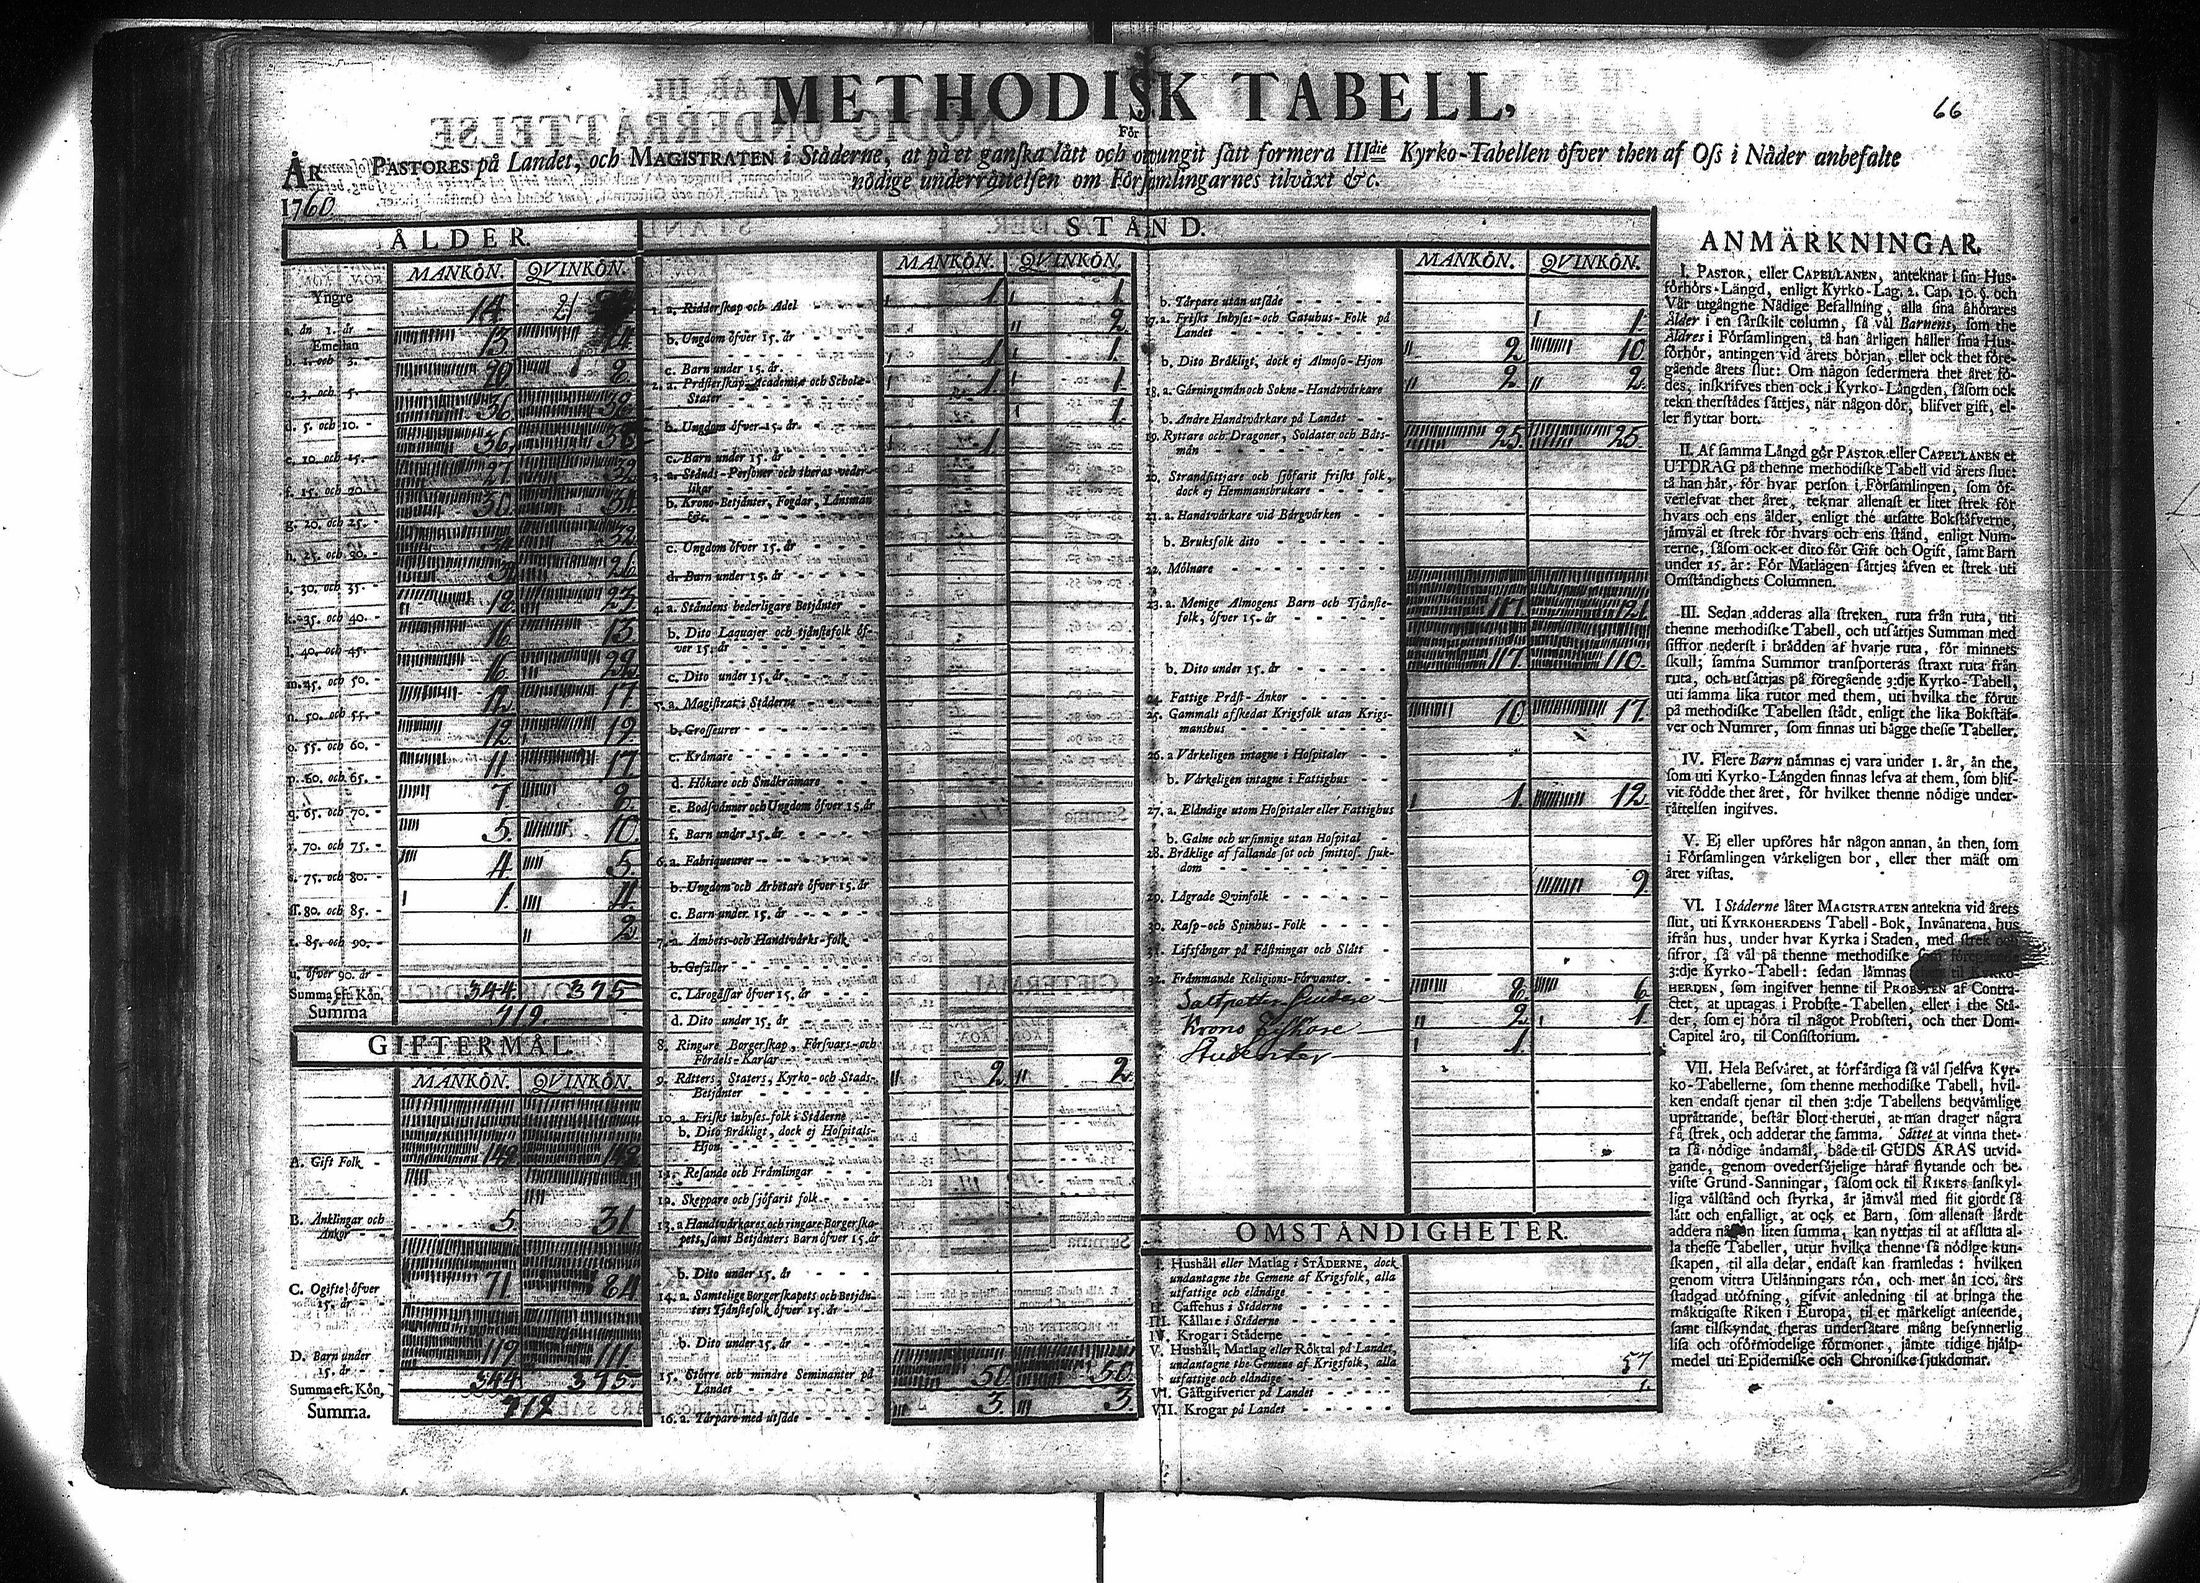 METHODISK TABELL,
66
För
ÅR PASTORES på Landet, och MAGISTRATEN i Städerne, at på et ganska lätt och otvungit sätt formera IIIdie Kyrko-Tabellen öfver then af Oss i Nåder anbefalte
nödige underrättelsen om Församlingarnes tilväxt &c.
1760
ÅLDER.
MANKÖN. QVINKÖN.
Yngre
a. än 1. år - 14 21
Emellan
b. 1. och 3. - 13 14
c. 3. och 5. - 20 8
d. 5. och 10. - 36 38
e. 10. och 15. - 36
f. 15. och 20. - 27 32
g. 20. och 25. - 30 34
h. 25. och 30. - 32
i. 30. och 35. - 26
k. 35. och 40. - 12 23
l. 40. och 45. - 16 13
m. 45. och 50. - 16 22
n. 50. och 55. - 12 17
o. 55. och 60. - 12 19
p. 60. och 65. - 11 17
q. 65. och 70. - 7 8
r. 70. och 75. - 5 10
s. 75. och 80. - 4 5
ff. 80. och 85. - 1 4
t. 85. och 90. - 2
u. öfver 90. år -
Summa eft. Kön. 344. 375
Summa 719.
GIFTERMÅL.
MANKÖN. QVINKÖN.
A. Gift Folk - 149 149
B. Änklingar och
Änkor - - 5. 31.
C. Ogifte öfver
15. år - - 71. 84
D. Barn under
15. år - - 119 111.
Summa eft. Kön. 344 375.
Summa. 719
STÅND.
MANKÖN. QVINKÖN.
1. a. Ridderskap och Adel 1 1
b. Ungdom öfver 15. år 2
c. Barn under 15. år 1 1
2. a. Prästerskap, Academiæ och Scholæ-
Stater 1 1
b. Ungdom öfver 15. år 1
c. Barn under 15. år 1
3. a. Stånds-Personer och theras veder-
likar
b. Krono-Betjänter, Fogdar, Länsmän
&c.
c. Ungdom öfver 15. år
d. Barn under 15. år
4. a. Ståndens hederligare Betjänter
b. Dito Laquajer och tjänstefolk öf-
ver 15. år
c. Dito under 15. år
5. a. Magistrat i Städerne
b. Grosseurer
c. Krämare
d. Hökare och Småkrämare
e. Bodsvänner och Ungdom öfver 15. år
f. Barn under 15. år
6. a. Fabriqueurer
b. Ungdom och Arbetare öfver 15. år
c. Barn under 15. år
7. a. Ämbets- och Handtvärks-folk
b. Gesäller
c. Lärogåssar öfver 15. år
d. Dito under 15. år
8. Ringare Borgerskap, Försvars- och
Fördels-Karlar
9. Rätters, Staters, Kyrko- och Stads-
Betjänter 2 2
10. a. Friskt inhyses-folk i Städerne
b. Dito Bräkligt, dock ej Hospitals-
Hjon
11. Resande och Främlingar
12. Skeppare och sjöfarit folk
13. a. Handtvärkares och ringare Borgerska-
pets, samt Betjänters Barn öfver 15. år
b. Dito under 15. år
14. a. Samtelige Borgerskapets och Betjän-
ters Tjänstefolk öfver 15. år
b. Dito under 15. år
15. Större och mindre Seminanter på
Landet 50 50
16. a. Torpare med utsäde 3. 3.
MANKÖN. QVINKÖN.
b. Torpare utan utsäde
17. a. Friskt Inhyses- och Gatuhus-Folk på
Landet 1
b. Dito Bräkligt, dock ej Almoso-Hjon 2 10
18. a. Gärningsmän och Sokne-Handtvärkare 2 2
b. Andre Handtvärkare på Landet
19. Ryttare och Dragoner, Soldater och Båts-
män 25. 25
20. Strandsittjare och sjöfarit friskt folk,
dock ej Hemmansbrukare
21. a. Handtvärkare vid Bärgvärken
b. Bruksfolk dito
22. Mölnare
23. a. Menige Almogens Barn och Tjänste-
folk, öfver 15. år 117 121
b. Dito under 15. år 117. 110.
24. Fattige Präst-Änkor
25. Gammalt afskedat Krigsfolk utan Krigs-
manshus 10 17
26. a. Värkeligen intagne i Hospitaler
b. Värkeligen intagne i Fattighus
27. a. Eländige utom Hospitaler eller Fattighus 1. 12
b. Galne och ursinnige utan Hospital
28. Bräklige af fallande sot och smittos. sjuk-
dom
29. Lägrade Qvinfolk 9
30. Rasp- och Spinhus-Folk
31. Lifsfångar på Fästningar och Slått
32. Främmande Religions-Förvanter
Saltpetter Siudare 8 6
Krono 2 1
Studenter 1
OMSTÄNDIGHETER.
I. Hushåll eller Matlag i STÄDERNE, dock
undantagne the Gemene af Krigsfolk, alla
utfattige och eländige
II. Caffehus i Städerne
III. Källare i Städerne
IV. Krogar i Städerne
V. Hushåll, Matlag eller Röktal på Landet,
undantagne the Gemene af Krigsfolk, alla
utfattige och eländige 57
VI. Gästgifverier på Landet 1.
VII. Krogar på Landet
ANMÄRKNINGAR.
I. PASTOR, eller CAPELLANEN, anteknar i sin Hus-
förhörs-Längd, enligt Kyrko-Lag. 2. Cap. 10. §. och
Vår utgångne Nådige Befallning, alla sina åhörares
Ålder i en särskilt column, så väl Barnens, som the
Äldres i Församlingen, tå han årligen håller sina Hus-
förhör, antingen vid årets början, eller ock thet före-
gående årets slut: Om någon sedermera thet året fö-
des, inskrifves then ock i Kyrko-Längden, såsom ock
tekn therstädes sättjes, när någon dör, blifver gift, el-
ler flyttar bort.
II. Af samma Längd gör PASTOR eller CAPELLANEN et
UTDRAG på thenne methodiske Tabell vid årets slut:
tå han här, för hvar person i Församlingen, som öf-
verlefvat thet året, teknar allenast et litet strek för
hvars och ens ålder, enligt the utsatte Bokstäfverne,
jämväl et strek för hvars och ens stånd, enligt Num-
rerne, såsom ock et dito för Gift och Ogift, samt Barn
under 15. år: För Matlagen sättjes äfven et strek uti
Omständighets Columnen.
III. Sedan adderas alla streken, ruta från ruta, uti
thenne methodiske Tabell, och utsättjes Summan med
siffror nederst i brädden af hvarje ruta, för minnets
skull; samma Summor transporteras straxt ruta från
ruta, och utsättjas på föregående 3:dje Kyrko-Tabell,
uti samma lika rutor med them, uti hvilka the förut
på methodiske Tabellen stådt, enligt the lika Bokstäf-
ver och Numrer, som finnas uti bägge thesse Tabeller.
IV. Flere Barn nämnas ej vara under 1. år, än the,
som uti Kyrko-Längden finnas lefva af them, som blif-
vit födde thet året, för hvilket thenne nödige under-
rättelsen ingifves.
V. Ej eller upföres här någon annan, än then, som
i Församlingen värkeligen bor, eller ther mäst om
året vistas.
VI. I Städerne låter MAGISTRATEN antekna vid årets
slut, uti KYRKOHERDENS Tabell-Bok, Invånarena, hus
ifrån hus, under hvar Kyrka i Staden, med strek och
sifror, så väl på thenne methodiske som föregående
3:dje Kyrko-Tabell: sedan lämnas then til KYRKO-
HERDEN, som ingifver henne til PROBSTEN af Contra-
ctet, at uptagas i Probste-Tabellen, eller i the Stä-
der, som ej höra til något Probsteri, och ther Dom-
Capitel äro, til Consistorium.
VII. Hela Besväret, at förfärdiga så väl sjelfva Kyr-
ko-Tabellerne, som thenne methodiske Tabell, hvil-
ken endast tjenar til then 3:dje Tabellens beqvämlige
uprättande, består blott theruti, at man drager några
få strek, och adderar the samma. Sättet at vinna thet-
ta så nödige ändamål, både til GUDS ÄRAS utvid-
gande, genom ovedersäjelige häraf flytande och be-
viste Grund-Sanningar, såsom ock til RIKETS sanskyl-
liga välstånd och styrka, är jämväl med flit gjordt så
lätt och enfalligt, at ock et Barn, som allenast lärdt
addera någon liten summa, kan nyttjas til at afsluta al-
la thesse Tabeller, utur hvilka thenne så nödige kun-
skapen, til alla delar, endast kan framledas: hvilken
genom vittra Utlänningars rön, och mer än 100. års
stadgad utöfning, gifvit anledning til at bringa the
mäktigaste Riken i Europa, til et märkeligt anseende,
samt tilskyndat theras undersåtare mång besynnerlig
lisa och oförmodelige förmoner, jämte tidige hjälp-
medel uti Epidemiske och Chroniske sjukdomar.